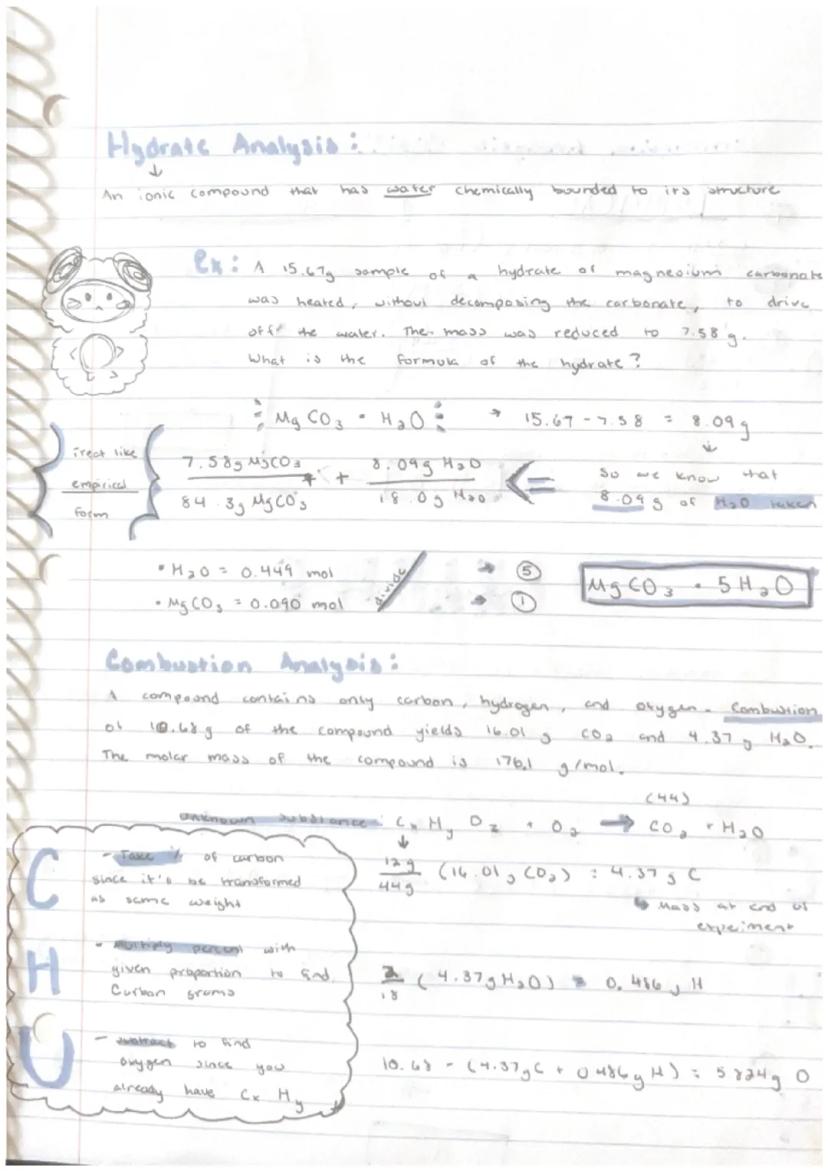 Hydrate Analysis:
↓
An ionic compound that has water chemically bounded to its structure
Ex: A 15.67g sample of a hydrate of magnesium carbonate
was heated, without decomposing the carbonate, to drive
off the water. The mass was reduced to 7.58 g.
What is the formula of the hydrate?
MgCO₃ • H₂O → 15.67 - 7.58 = 8.09g
↓
treat like
empirical
form
7.58g MgCO₃ + 8.09g H₂O
84.3g MgCO₃ 18.0g H₂O
<=
So we know that
8.09g of H₂O taken
• H₂O = 0.449 mol
• MgCO₃ = 0.090 mol
divide
→ 5
→ 1
MgCO₃ • 5H₂O
Combustion Analysis:
A compound contains only carbon, hydrogen, and oxygen. Combustion
of 10.68g of the compound yields 16.01 g CO₂ and 4.37g H₂O.
The molar mass of the compound is 176.1 g/mol.
(44)
unknown substance: CₓHᵧO_z + O₂ → CO₂ + H₂O
↓
C
- Take % of carbon
since it's be transformed
as same weight
12g
44g
(16.01g CO₂) = 4.37g C
↳ Mass at end of
experiment
H
- multiply percent with
given proportion to find
Carbon grams
2
18
(4.37g H₂O) = 0.486g H
O
- subtract to find
oxygen since you
already have Cₓ Hᵧ
10.68 - (4.37gC + 0.486g H) = 5.824g O